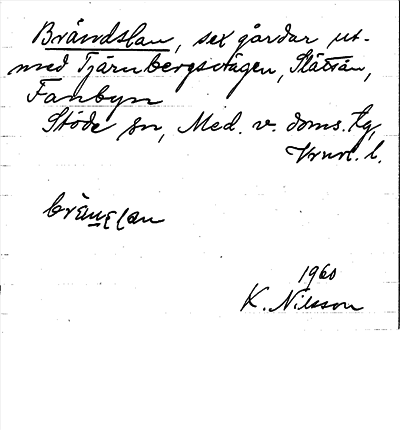 Brändslan, sex gårdar ut-
med Tjärnbergsvägen, Slättån,
Fanbyn
Stöde sn, Med. v. doms. tg,
Vrnrl. l.
brän̲slan
1960
K. Nilsson